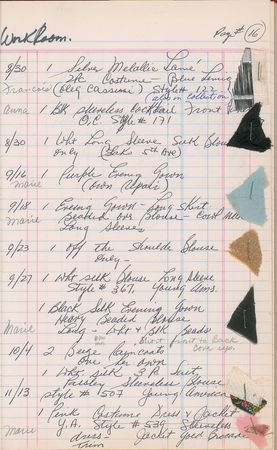 WorkRoom. Page # 16
8/30 1 Silver Metallic Lamé
2 Pc Costume - (Blue Lining
Francois (Oleg Cassini) Style# 177
also on collection
Anna 1 Blk sleeveless Cocktail Front
O.C. Style # 171
8/30 1 Wht Long Sleeve Silk Blouse
only (Saks 5th Ave)
9/16 1 Purple Evening Gown
Marie (own
9/18 1 Evening Gown - Long Skirt
Marie Beaded over Blouse - Cowl
Long Sleeves
9/23 1 Off the Shoulder Blouse
only -
9/27 1 Wht silk blouse Long Sleeve
Style # 367, Young Ams.
1 Black Silk Evening Gown
Heavy Beaded Blouse
Marie Long - Wht & Blk Beads
10/4 2 Beige Raincoats
One her own
1 Wht silk 3 Pc Suit
Paisley Sleeveless Blouse
11/13 Style # 507 Young America
1 Pink Costume Dress & Jacket
Marie Y.A. Style # 539 - Sleeveless
dress - Jacket Gold Brocade
Trim